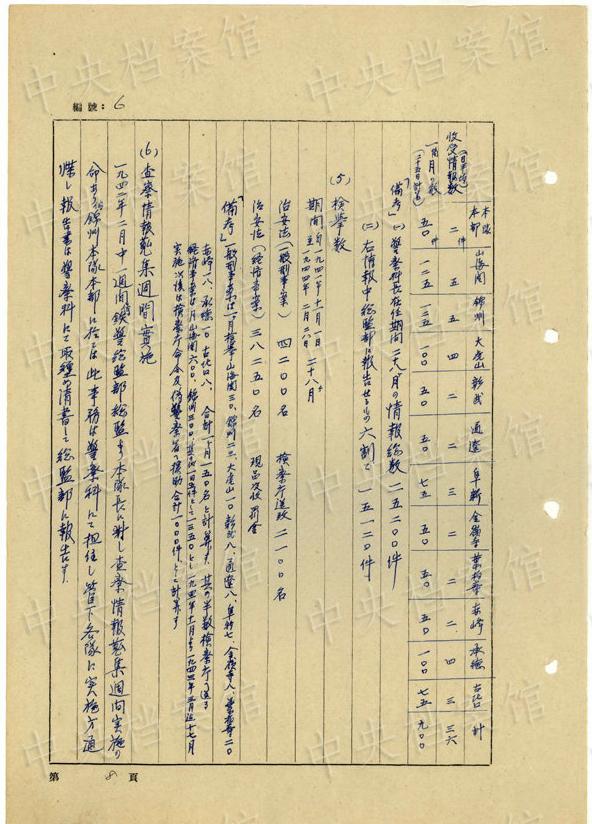 編號：6
本隊本部 山海関 錦州 大虎山 彰武 通遼 阜新 金嶺寺 葉柏寿 赤峰 承徳 古北口 計
收受情報數(一日平均) 二件 五 五 四 二 二 三 二 二 二 四 三 三六
一箇月の數(二十五日計算) 五〇件 一二五 一二五 一〇〇 五〇 五〇 七五 五〇 五〇 五〇 一〇〇 七五 九〇〇
「備考」(一)警務科長在任期間二十八ヶ月の情報総数 二五二〇〇件
(二)右情報中総監部に報告せるもの六割で 一五一二〇件
(5) 検挙数
期間 自一九四一年十一月一日 至一九四四年二月二八日 二十八月
治安法(一般刑事案) 四二〇〇名 検察庁送致 二一〇〇名
治安法(経済事案) 三八二五〇名 現品没收 罰金
「備考」一般刑事案は一月検挙 山海関三〇、錦州二三、大虎山一〇 彰武八、通遼八、阜新七、金嶺寺八、葉柏寿二〇
赤峰一八、承徳一〇 古北口八、合計一月一五〇名と計算す、其の半数検察庁へ送る
経済事案は月山海関六〇〇、錦州三〇〇、
実施
(6) 査察情報蒐集週間實施
一九四二年二月中一週間鉄警総監部総監より本隊長に対し査察情報蒐集週間実施の
命あり錦州本隊本部に於ては此事務は警察科にて担任し管下各隊に実施方通
牒し報告書は警察科にて取纏め清書して総監部に報告す
第 8 頁
中央档案馆